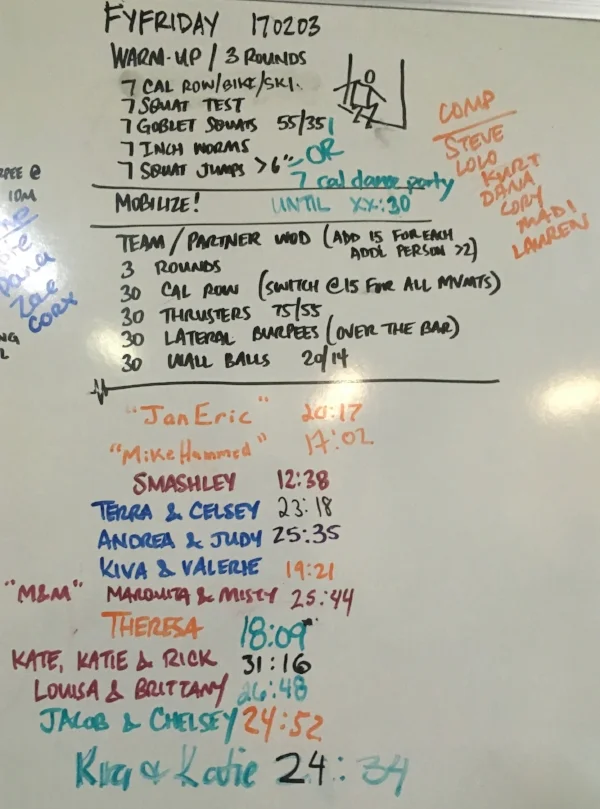 FYFRIDAY 170203
WARM-UP / 3 ROUNDS
7 CAL ROW/BIKE/SKI.
7 SQUAT TEST
7 GOBLET SQUATS 55/35
7 INCH WORMS
7 SQUAT JUMPS >6"
OR
7 cal dance party
MOBILIZE! UNTIL XX:30
TEAM / PARTNER WOD (ADD 15 FOR EACH
ADD'L PERSON >2)
3 ROUNDS
30 CAL ROW (SWITCH @15 FOR ALL MVMTS)
30 THRUSTERS 75/55
30 LATERAL BURPEES (OVER THE BAR)
30 WALL BALLS 20/14
COMP
STEVE
LOLO
KURT
DANA
CORY
MADI
LAUREN
@
10M
Dana
Zae
CORY
"JanEric" 20:17
"MikeHammed" 17:02
SMASHLEY 12:38
TERRA & CELSEY 23:18
ANDREA & JUDY 25:35
KIVA & VALERIE 19:21
"M&M" MARQUITA & MISTY 25:44
THERESA 18:09
KATE, KATIE & RICK 31:16
LOUISA & BRITTANY 26:48
JACOB & CHELSEY 24:52
& Katie 24:34